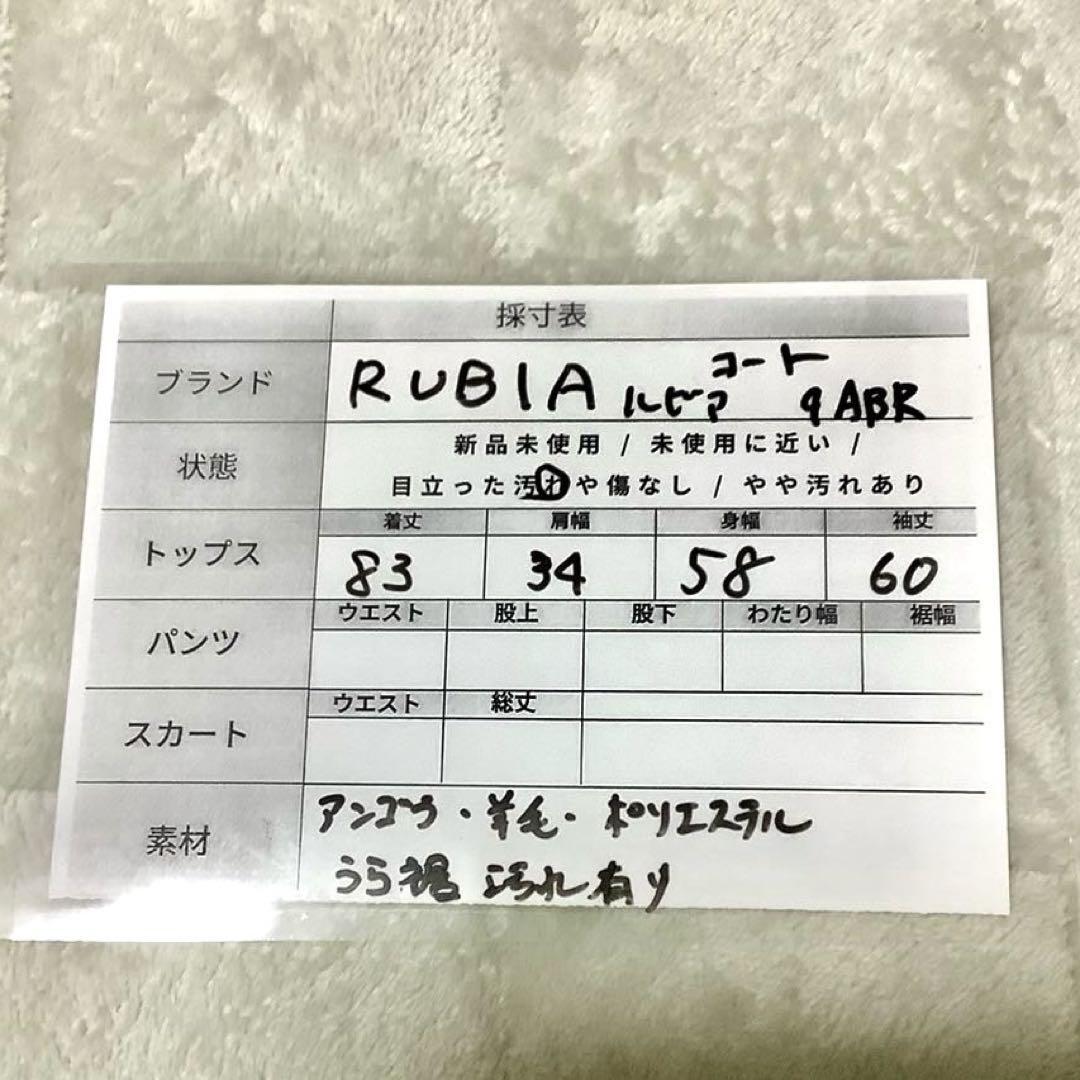 採寸表
ブランド
コート
RUBIA ルビア 9ABR
状態
新品未使用 / 未使用に近い /
目立った汚れや傷なし / やや汚れあり
トップス
着丈 肩幅 身幅 袖丈
83 34 58 60
パンツ
ウエスト 股上 股下 わたり幅 裾幅
スカート
ウエスト 総丈
素材
アンゴラ・羊毛・ポリエステル
うら裾 汚れ有り